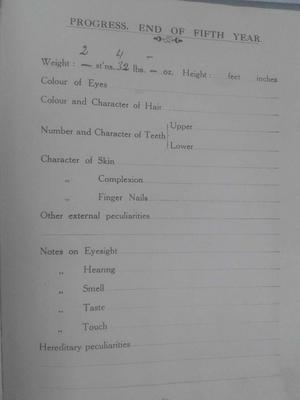 PROGRESS. END OF FIFTH YEAR.
2 4 –
Weight : – st'ns. 32 lbs. – oz. Height : feet inches
Colour of Eyes
Colour and Character of Hair
Number and Character of Teeth { Upper
Lower
Character of Skin
„ Complexion
„ Finger Nails
Other external peculiarities
Notes on Eyesight
„ Hearing
„ Smell
„ Taste
„ Touch
Hereditary peculiarities